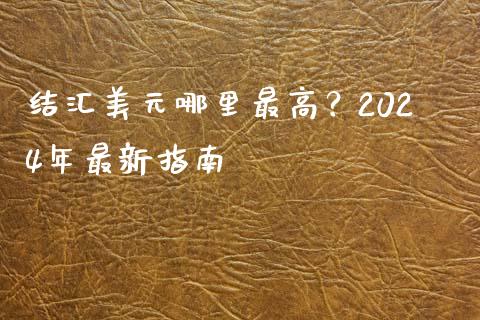 结汇美元哪里最高？202
4年最新指南